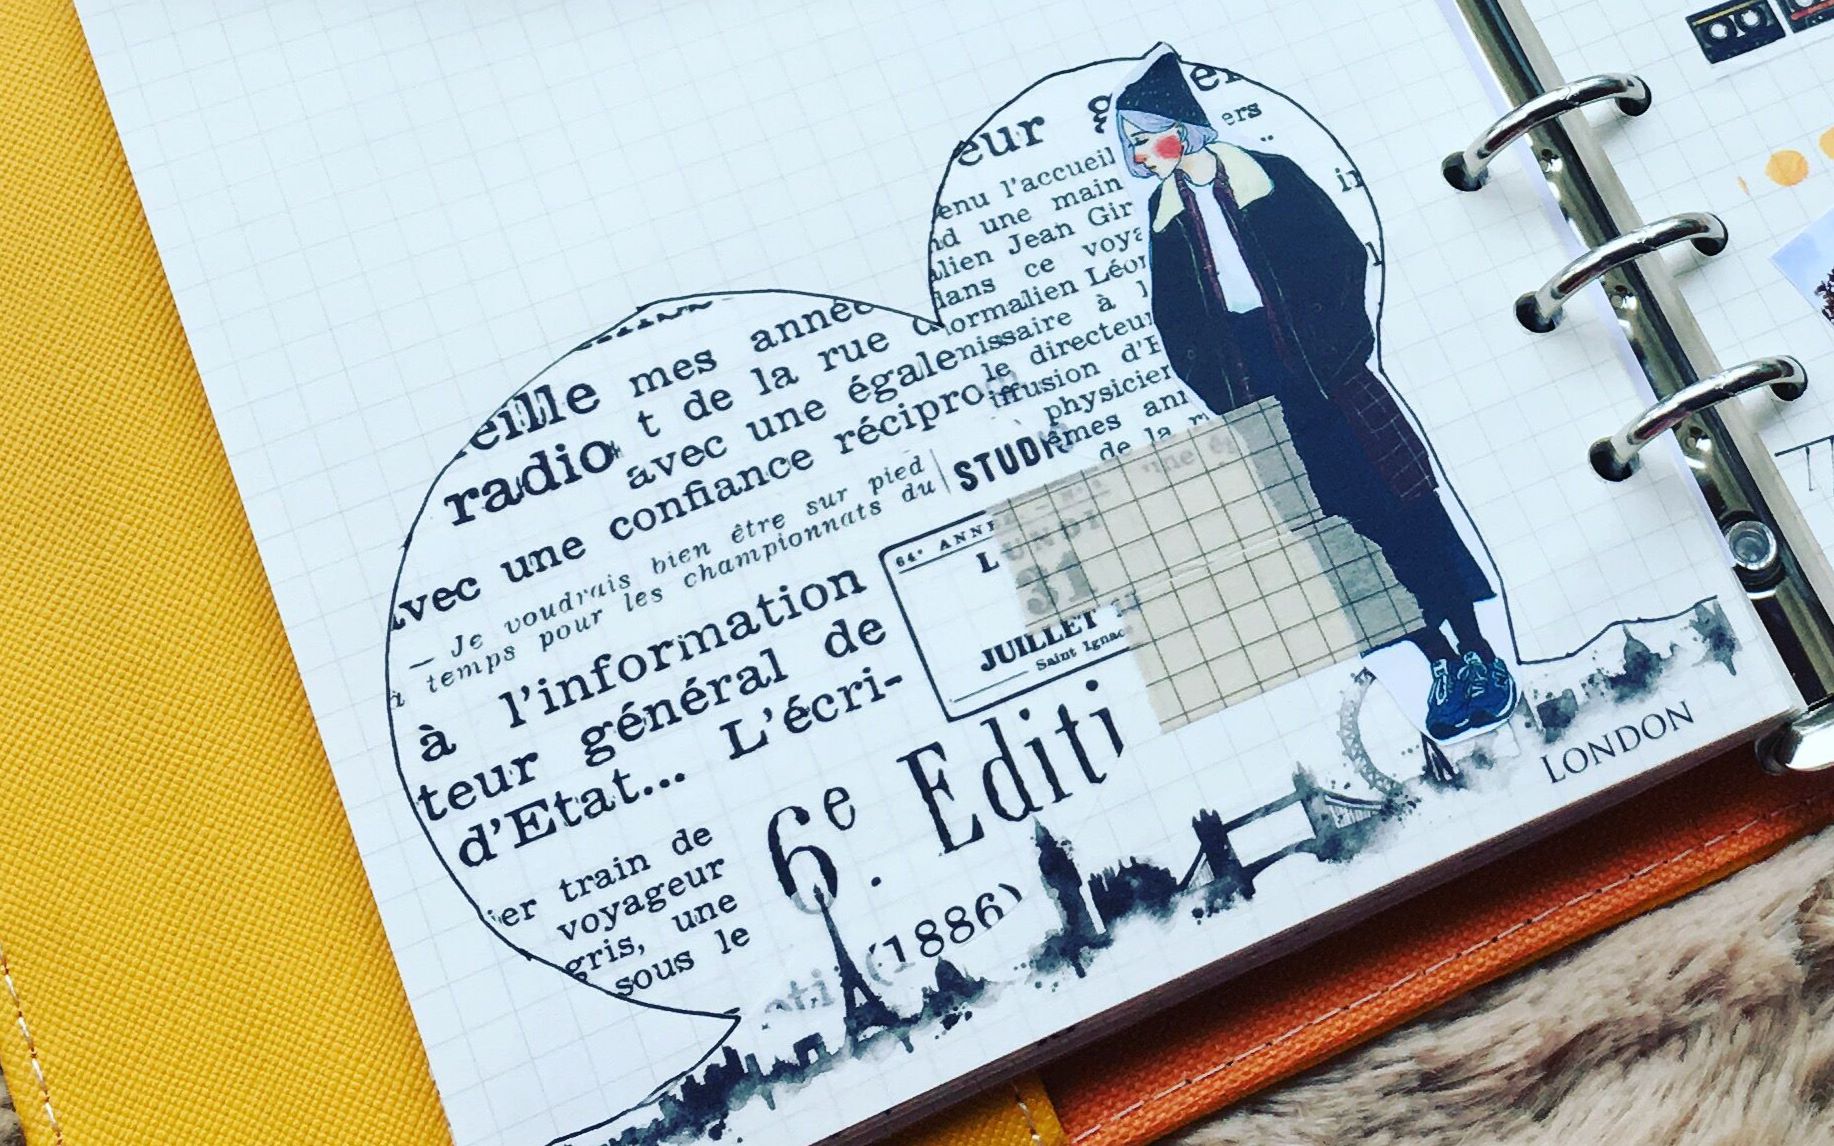 eur
ers
enu l'accueil
nd une main
alien Jean Gir
dans ce voya
normalien Léon
nissaire à l
le directeur
iffusion d'E
physicien
êmes ann
de la r
une ég
eille mes année
radio t de la rue d
avec une égale
avec une confiance récipro
— Je voudrais bien être sur pied
à temps pour les championnats du
STUDI
64e ANNÉ
LUNDI
31
JUILLET
Saint Ignac
à l'information
teur général de
d'Etat... L'écri-
6e. Editi
(1886)
ier train de
voyageur
gris, une
sous le
LONDON